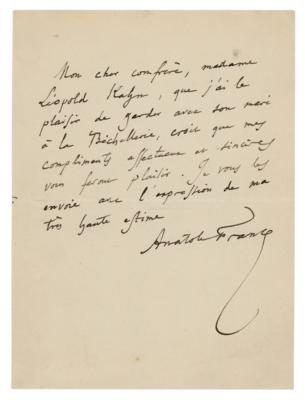 Mon cher confrère, madame
Léopold Kahn, que j'ai le
plaisir de garder avec son mari
à la Béchellerie, croit que mes
compliments affectueux et sincères
vous feront plaisir. Je vous les
envoie avec l'expression de ma
très haute estime
Anatole France